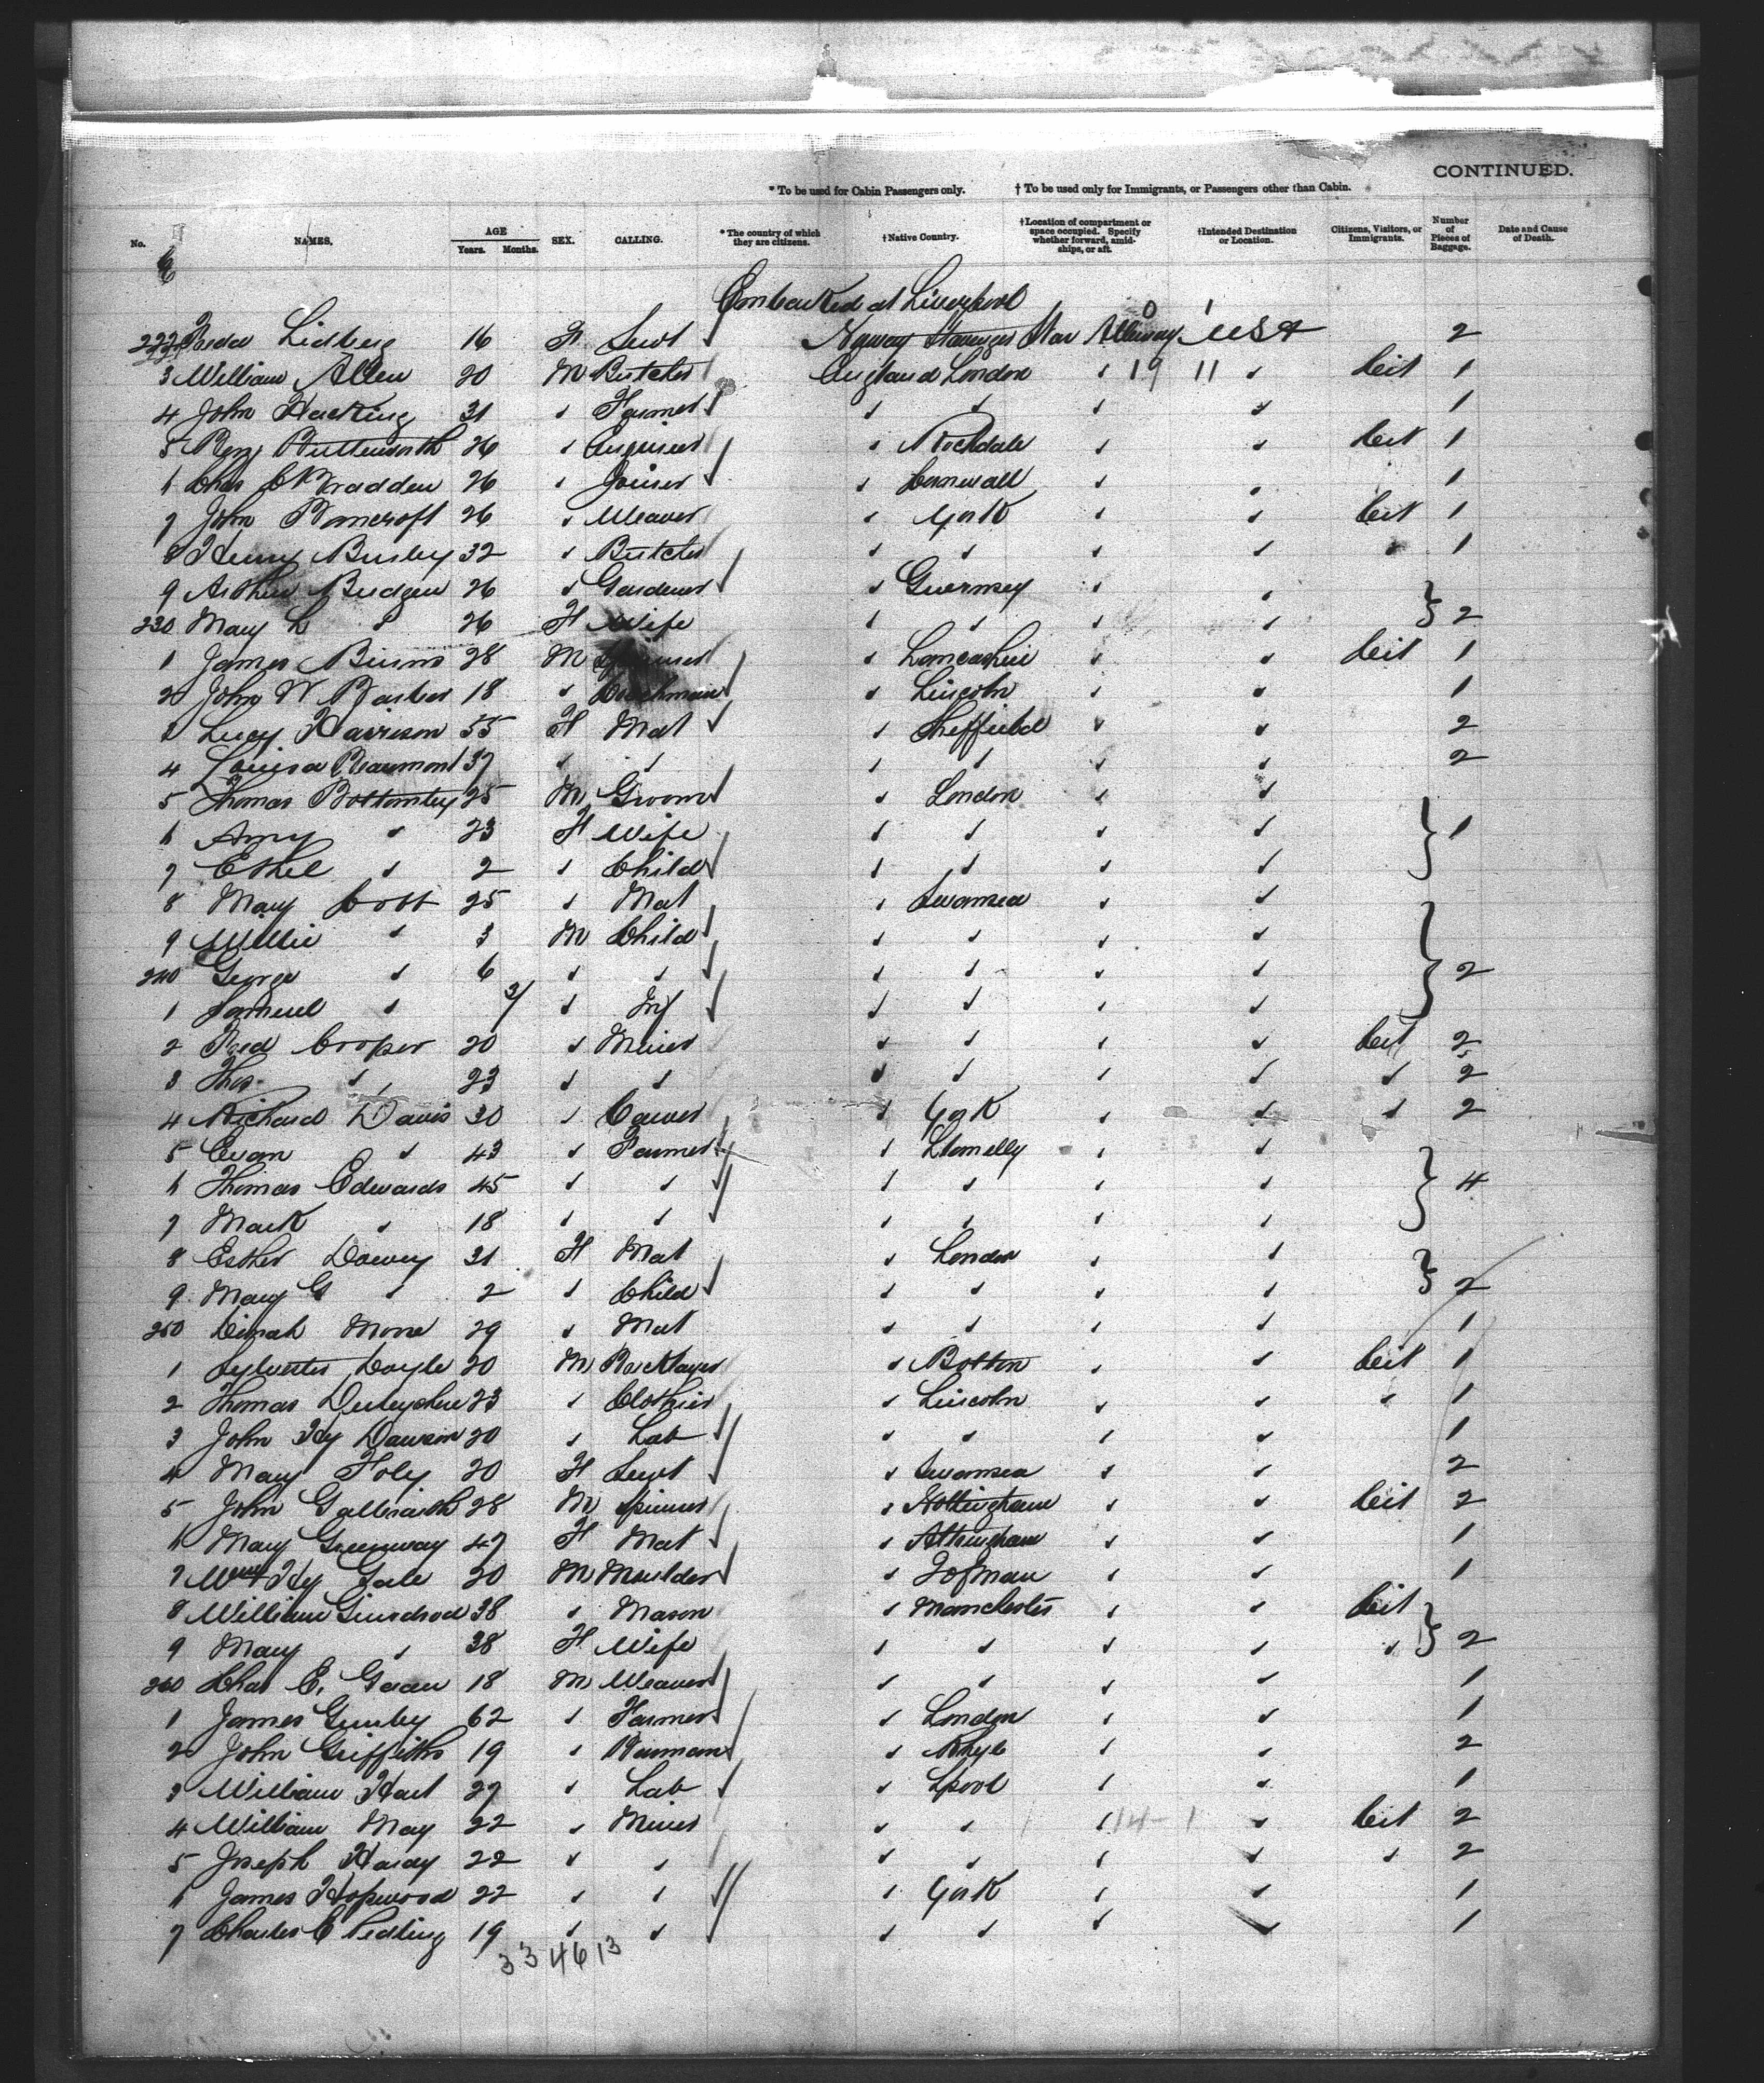 CONTINUED.
* To be used for Cabin Passengers only. † To be used only for Immigrants, or Passengers other than Cabin.
No. NAMES. AGE Years. Months. SEX. CALLING. * The country of which they are citizens. † Native Country. † Location of compartment or space occupied. Specify whether forward, amidships, or aft. † Intended Destination or Location. Citizens, Visitors, or Immigrants. Number of Pieces of Baggage. Date and Cause of Death.
Embarked at Liverpool
222 Lidberg 16 F Servt Norway Stavanger USA 2
3 William Allen 20 M Butcher England London 19 11 Cit 1
4 John Hacking 31 Farmer 1
5 Benj Butterworth 26 Engineer Rochdale Cit 1
6 Chas Madden 26 Joiner Cornwall 1
7 John Bancroft 26 Weaver York Cit 1
8 Henry Busley 32 Butcher 1
9 Arthur Budgen 26 Gardener Guernsey
230 Mary L 26 F Wife 2
1 James Binns 28 M Lancashire Cit 1
2 John W Barber 18 Coachman Lincoln 1
3 Lucy Harrison 55 F Mat Sheffield 2
4 Louisa Beaumont 37 2
5 Thomas Bottomley 25 M Groom London
6 Amy 23 F Wife 1
7 Ethel 2 Child
8 Mary Cobb 25 Mat Swansea
9 Willie 3 M Child
240 George 6 2
1 Samuel Inf
2 Fred Cooper 20 Miner Cit 2
3 Thos 23 2
4 Richard Davis 30 Carver York 2
5 Evan 43 Farmer Llanelly
6 Thomas Edwards 45 4
7 Mark 18
8 Esther Dowey 31 F Mat London
9 Mary G 2 Child 2
250 Dinah 29 Mat 1
1 Sylvester Doyle 20 M Bolton Cit 1
2 Thomas 23 Clothier Lincoln 1
3 John Hy Dawson 20 Lab 1
4 Mary Foley 20 F Servt Swansea 2
5 John Galbraith 28 M Spinner Nottingham Cit 2
6 Mary Greenway 47 F Mat Altringham 1
7 Wm Hy Gale 20 M Moulder I of Man 1
8 William 38 Mason Manchester Cit
9 Mary 38 F Wife 2
260 Chas E. 18 M Weaver 1
1 James 62 Farmer London 1
2 John Griffiths 19 Rhyl 2
3 William Hart 27 Lab Lpool 1
4 William May 22 Miner 14-1 Cit 2
5 Joseph Hardy 22 2
6 James Hopwood 22 York 1
7 Charles E 19 1
33 46 13